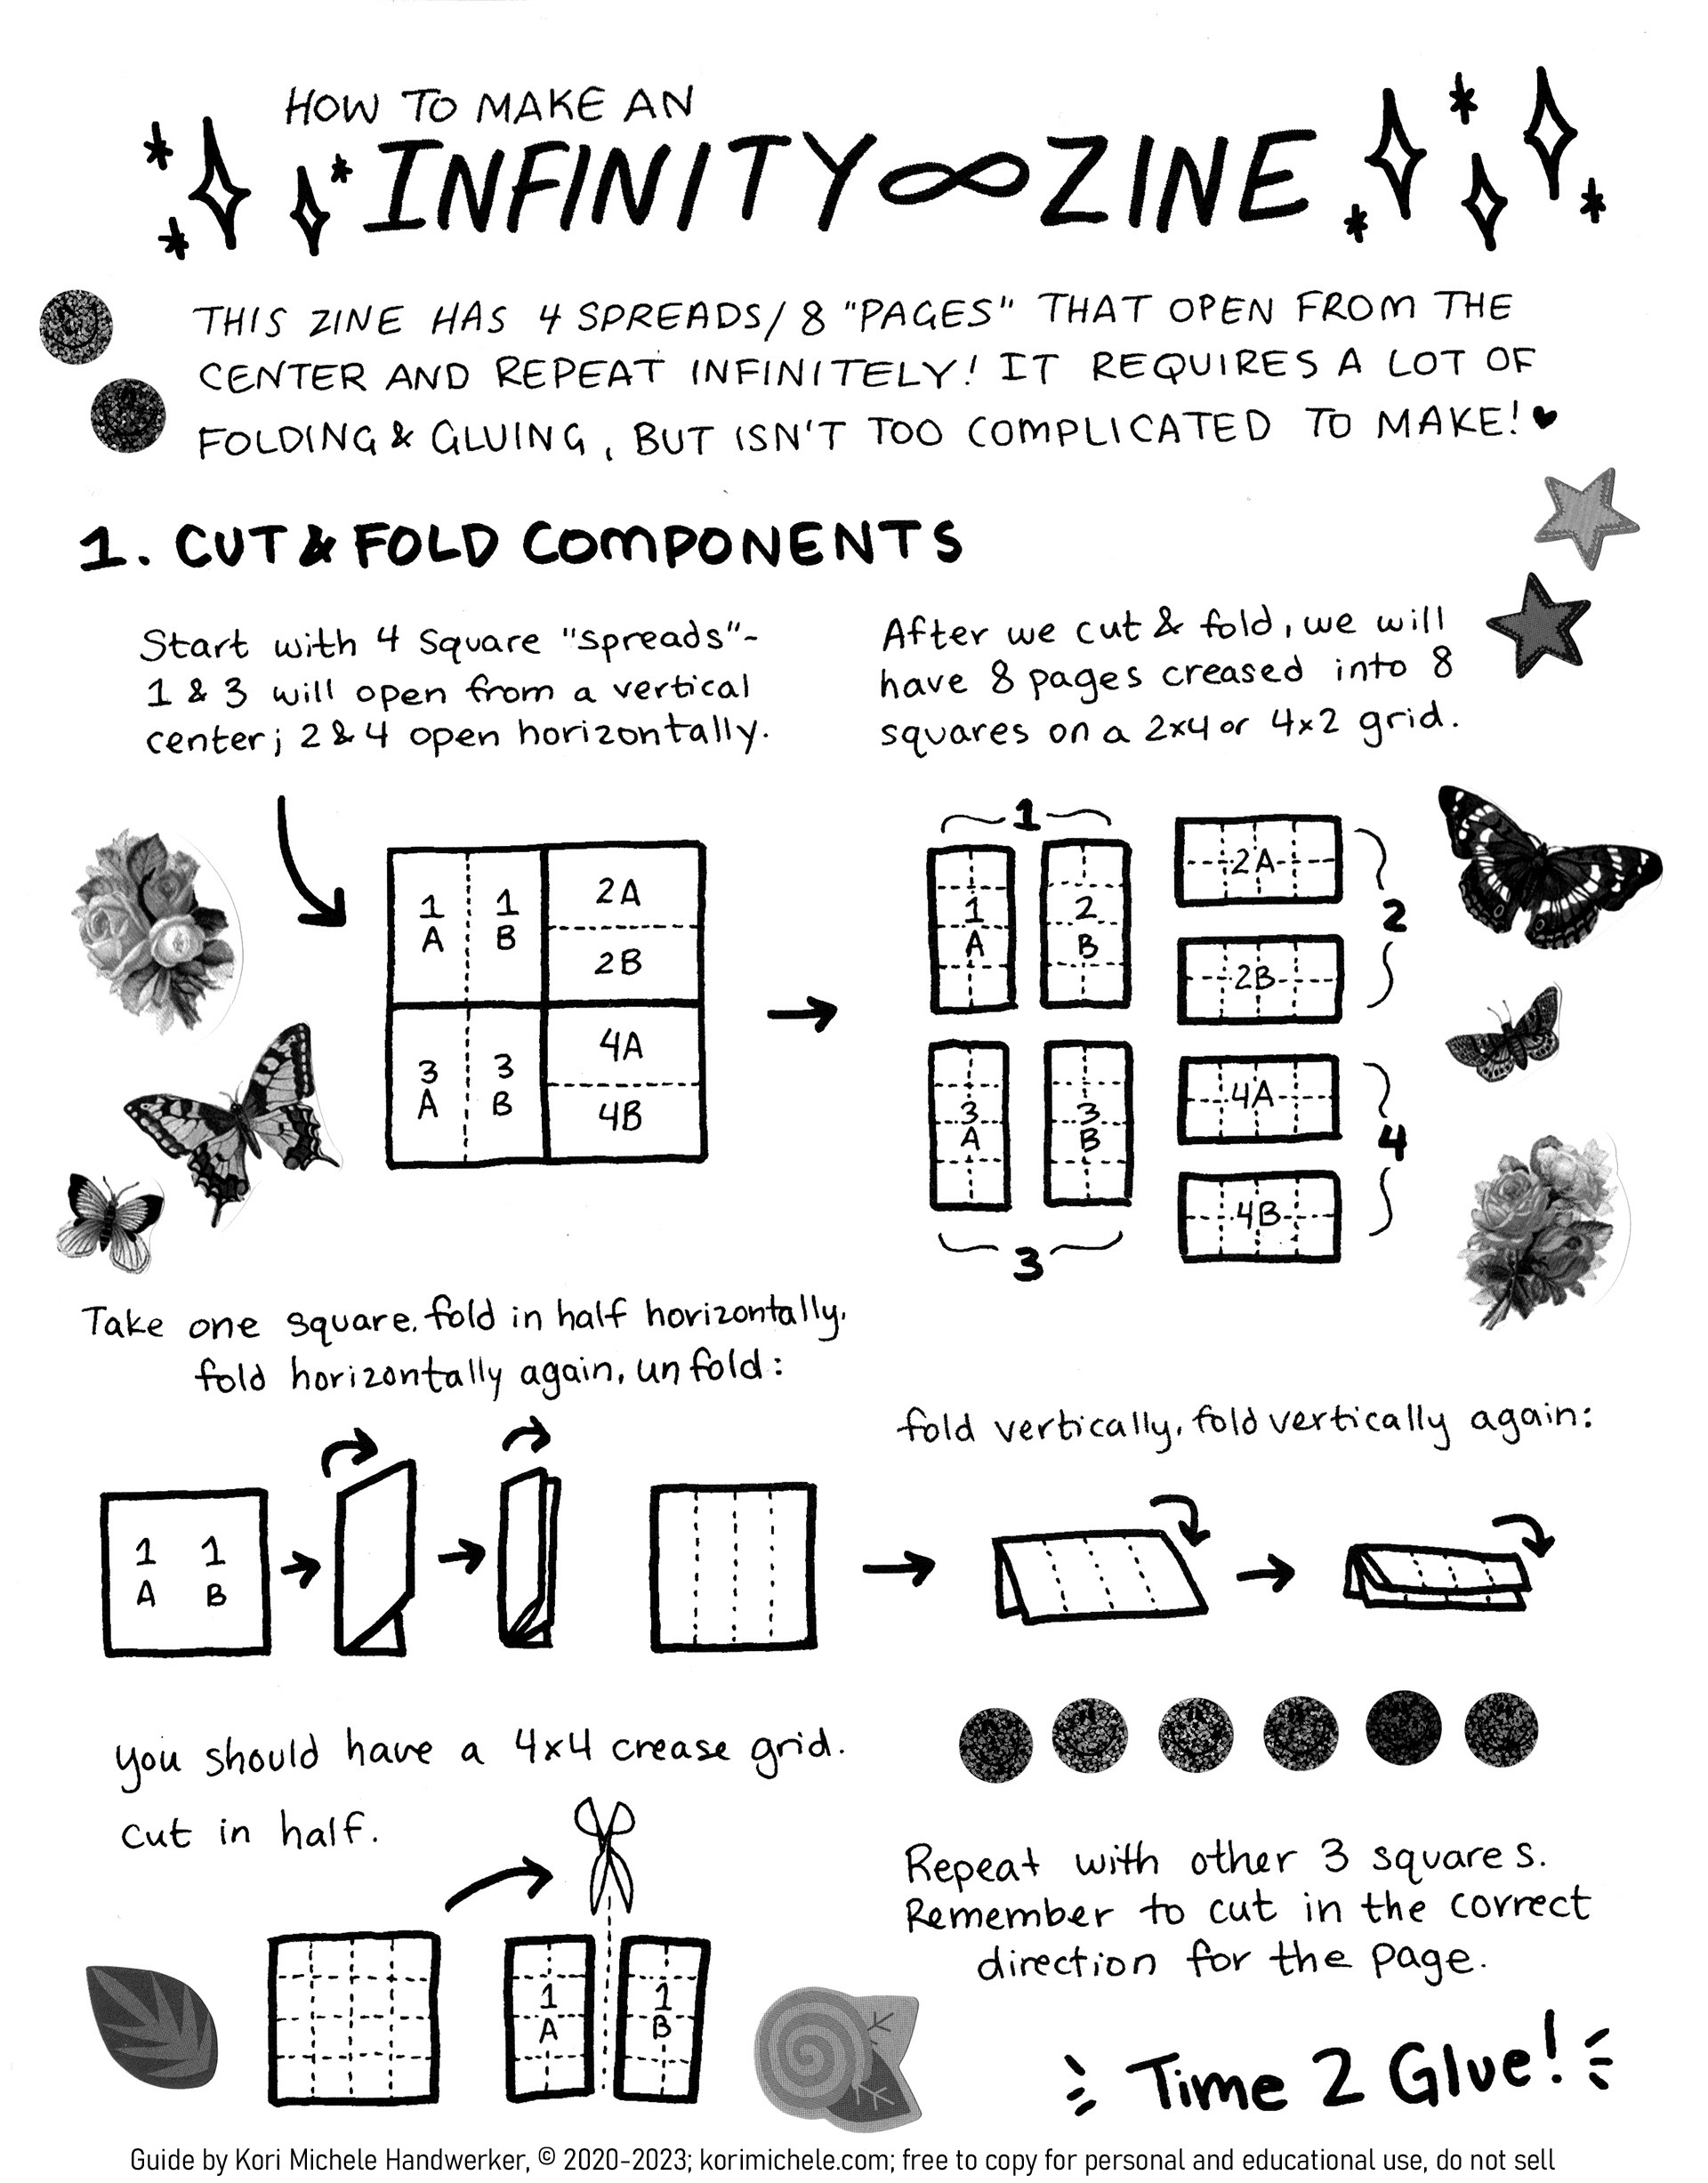 HOW TO MAKE AN
INFINITY ∞ ZINE
THIS ZINE HAS 4 SPREADS/ 8 "PAGES" THAT OPEN FROM THE
CENTER AND REPEAT INFINITELY! IT REQUIRES A LOT OF
FOLDING & GLUING, BUT ISN'T TOO COMPLICATED TO MAKE! ♥
1. CUT & FOLD COMPONENTS
Start with 4 Square "spreads"-
1 & 3 will open from a vertical
center; 2 & 4 open horizontally.
After we cut & fold, we will
have 8 pages creased into 8
squares on a 2x4 or 4x2 grid.
1 A
1 B
2A
2B
3 A
3 B
4A
4B
1
1 A
2 B
2A
2B
2
3 A
3 B
3
4A
4B
4
Take one square. fold in half horizontally.
fold horizontally again, unfold:
fold vertically, fold vertically again:
1 1
A B
you should have a 4x4 crease grid.
cut in half.
1 A
1 B
Repeat with other 3 squares.
Remember to cut in the correct
direction for the page.
Time 2 Glue!
Guide by Kori Michele Handwerker, © 2020-2023; korimichele.com; free to copy for personal and educational use, do not sell